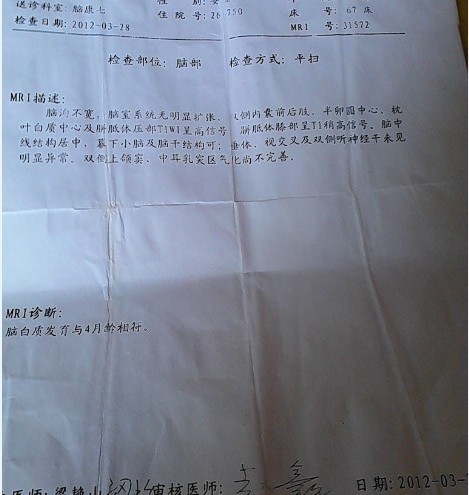 送诊科室: 脑康七 别: 女
检查日期: 2012-03-28 住院号: 26750 床号: 67床
MRI号: 31522
检查部位: 脑部 检查方式: 平扫
MRI描述:
脑沟不宽, 脑室系统无明显扩张, 双侧内囊前后肢、半卵圆中心, 枕
叶白质中心及胼胝体压部T1WI呈高信号, 胼胝体膝部呈T1稍高信号。脑中
线结构居中, 幕下小脑及脑干结构可; 垂体、视交叉及双侧听神经干未见
明显异常。双侧上颌窦、中耳乳突区气化尚不完善。
MRI诊断:
脑白质发育与4月龄相符。
医师: 审核医师: 日期: 2012-03-